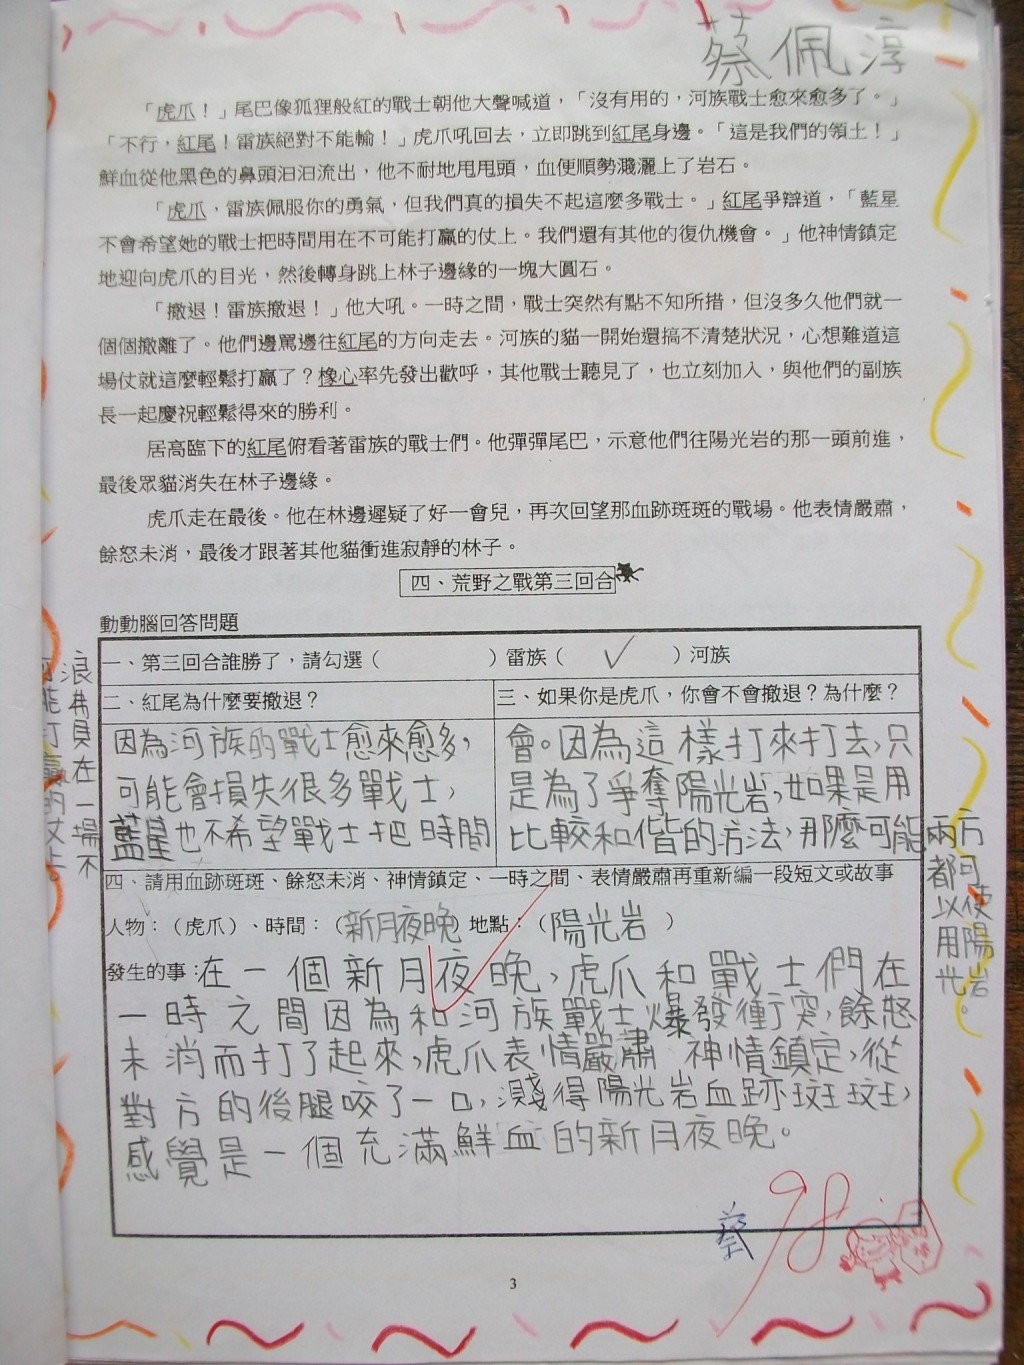 蔡佩淳
「虎爪！」尾巴像狐狸般紅的戰士朝他大聲喊道，「沒有用的，河族戰士愈來愈多了。」
「不行，紅尾！雷族絕對不能輸！」虎爪吼回去，立即跳到紅尾身邊。「這是我們的領土！」
鮮血從他黑色的鼻頭汩汩流出，他不耐地甩甩頭，血便順勢濺灑上了岩石。
「虎爪，雷族佩服你的勇氣，但我們真的損失不起這麼多戰士。」紅尾爭辯道，「藍星
不會希望她的戰士把時間用在不可能打贏的仗上。我們還有其他的復仇機會。」他神情鎮定
地迎向虎爪的目光，然後轉身跳上林子邊緣的一塊大圓石。
「撤退！雷族撤退！」他大吼。一時之間，戰士突然有點不知所措，但沒多久他們就一
個個撤離了。他們邊罵邊往紅尾的方向走去。河族的貓一開始還搞不清楚狀況，心想難道這
場仗就這麼輕鬆打贏了？橡心率先發出歡呼，其他戰士聽見了，也立刻加入，與他們的副族
長一起慶祝輕鬆得來的勝利。
居高臨下的紅尾俯看著雷族的戰士們。他彈彈尾巴，示意他們往陽光岩的那一頭前進，
最後眾貓消失在林子邊緣。
虎爪走在最後。他在林邊遲疑了好一會兒，再次回望那血跡斑斑的戰場。他表情嚴肅，
餘怒未消，最後才跟著其他貓衝進寂靜的林子。
四、荒野之戰第三回合
動動腦回答問題
一、第三回合誰勝了，請勾選（ ）雷族（ ✓ ）河族
二、紅尾為什麼要撤退？
因為河族的戰士愈來愈多，
可能會損失很多戰士，
藍星也不希望戰士把時間
浪費在一場不
可能打贏的仗上。
三、如果你是虎爪，你會不會撤退？為什麼？
會。因為這樣打來打去，只
是為了爭奪陽光岩，如果是用
比較和偕的方法，那麼可能兩方
都可
以使
用陽
光岩。
四、請用血跡斑斑、餘怒未消、神情鎮定、一時之間、表情嚴肅再重新編一段短文或故事
人物：（虎爪）、時間：（新月夜晚）地點：（陽光岩 ）
發生的事：在一個新月夜晚，虎爪和戰士們在
一時之間因為和河族戰士爆發衝突，餘怒
未消而打了起來，虎爪表情嚴肅 神情鎮定，從
對方的後腿咬了一口，濺得陽光岩血跡斑斑，
感覺是一個充滿鮮血的新月夜晚。
蔡
98
3